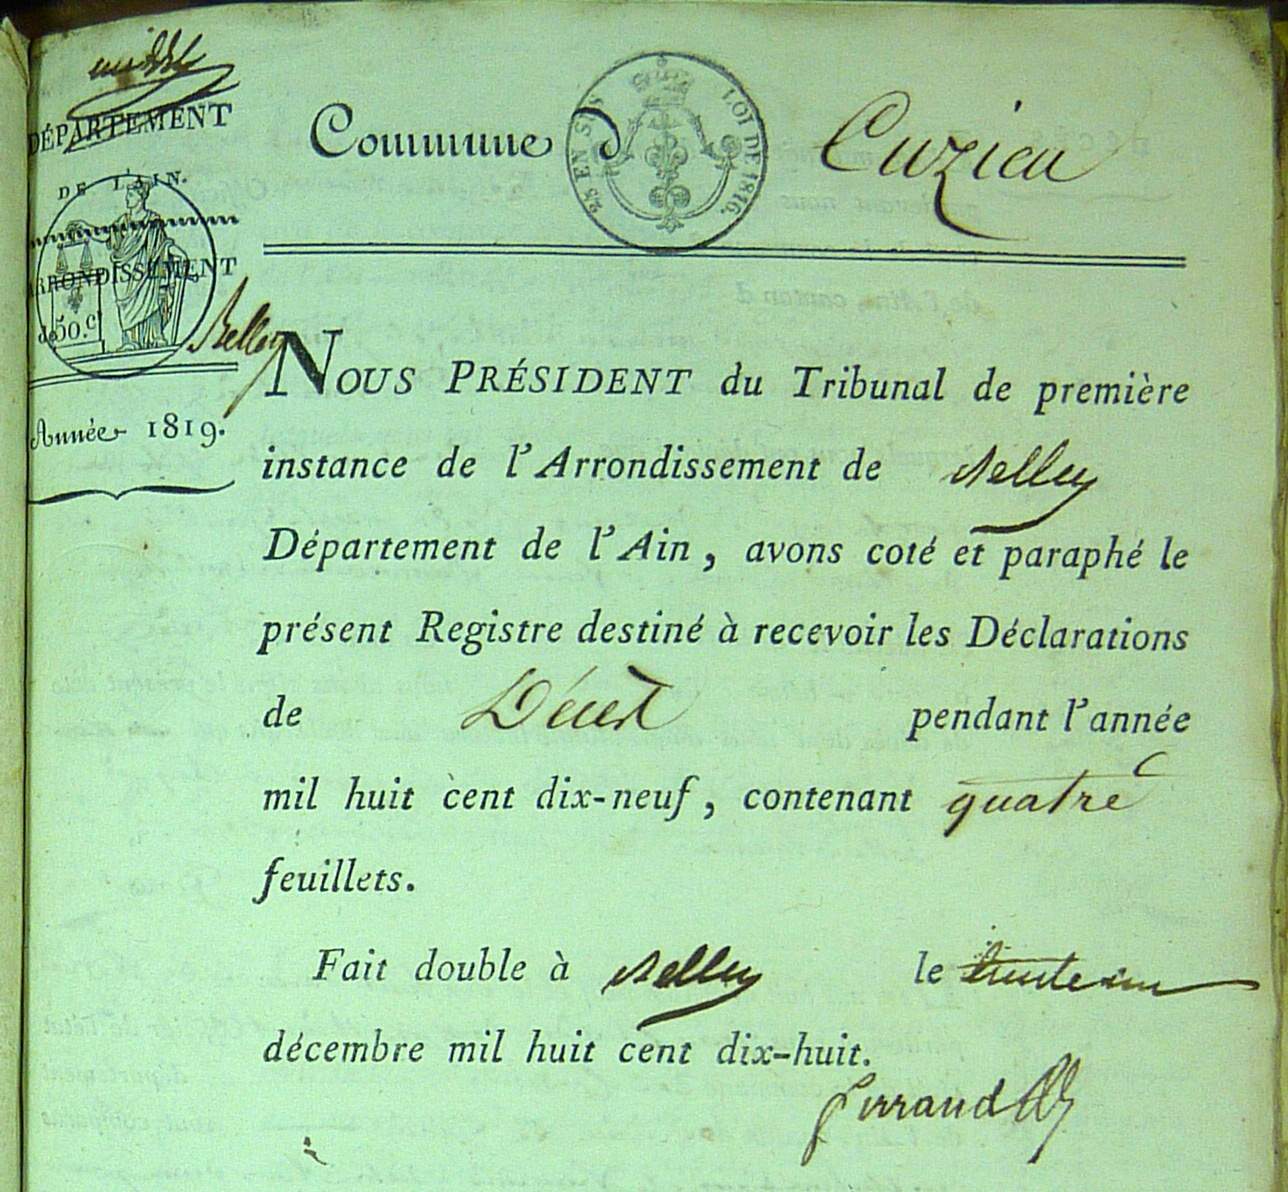 DÉPARTEMENT
DE L'AIN.
ARRONDISSEMENT
de Belley
50.c
Année 1819.
Commune d Cuzieu
25 EN SUS LOI DE 1816.
NOUS PRÉSIDENT du Tribunal de première
instance de l'Arrondissement de Belley
Département de l'Ain, avons coté et paraphé le
présent Registre destiné à recevoir les Déclarations
de Décès pendant l'année
mil huit cent dix-neuf, contenant quatre
feuillets.
Fait double à Belley le trente un
décembre mil huit cent dix-huit.